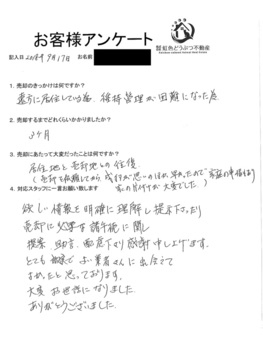 お客様アンケート
株式会社 虹色どうぶつ不動産
記入日 2018年9月17日 お名前
1. 売却のきっかけは何ですか？
遠方に居住している為、維持管理が困難になった為
2. 売却するまでどれくらいかかりましたか？
3ヶ月
3. 売却にあたって大変だったことは何ですか？
居住地と売却地との往復
(売却を依頼してから、成約が思いのほか早かったので
家の片付けが大変でした)
4. 対応スタッフに一言お願い致します
欲しい情報を明確に理解し提示下さり
売却に必要な諸手続に関し
提案、助言、配慮下さり感謝申し上げます。
とても お業者さんに出会えて
よかったと思っております。
大変お世話になりました
ありがとうございました